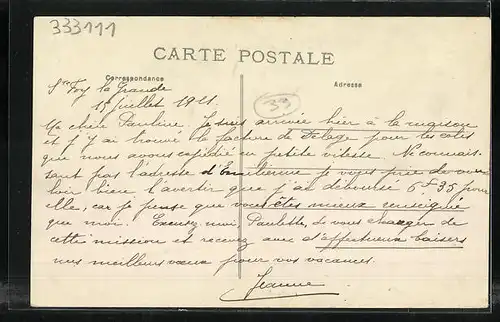 333111
CARTE POSTALE
Correspondance
Adresse
Ste Foy la Grande
15 juillet 1921.
39
Ma chère Pauline, Je suis arrivée hier à la maison
et j'y ai trouvé la facture de pour les colis
que nous avons expédié en petite vitesse. Ne connais-
sant pas l'adresse d'Emilienne je vous prie de vou
loir bien l'avertir que j'ai déboursé 6f35 pour
elle, car je pense que vous êtes mieux renseignée
que moi. Excusez moi, Paulette, de vous charger de
cette mission et recevez avec d'affectueux baisers
mes meilleurs vœux pour vos vacances.
Jeanne